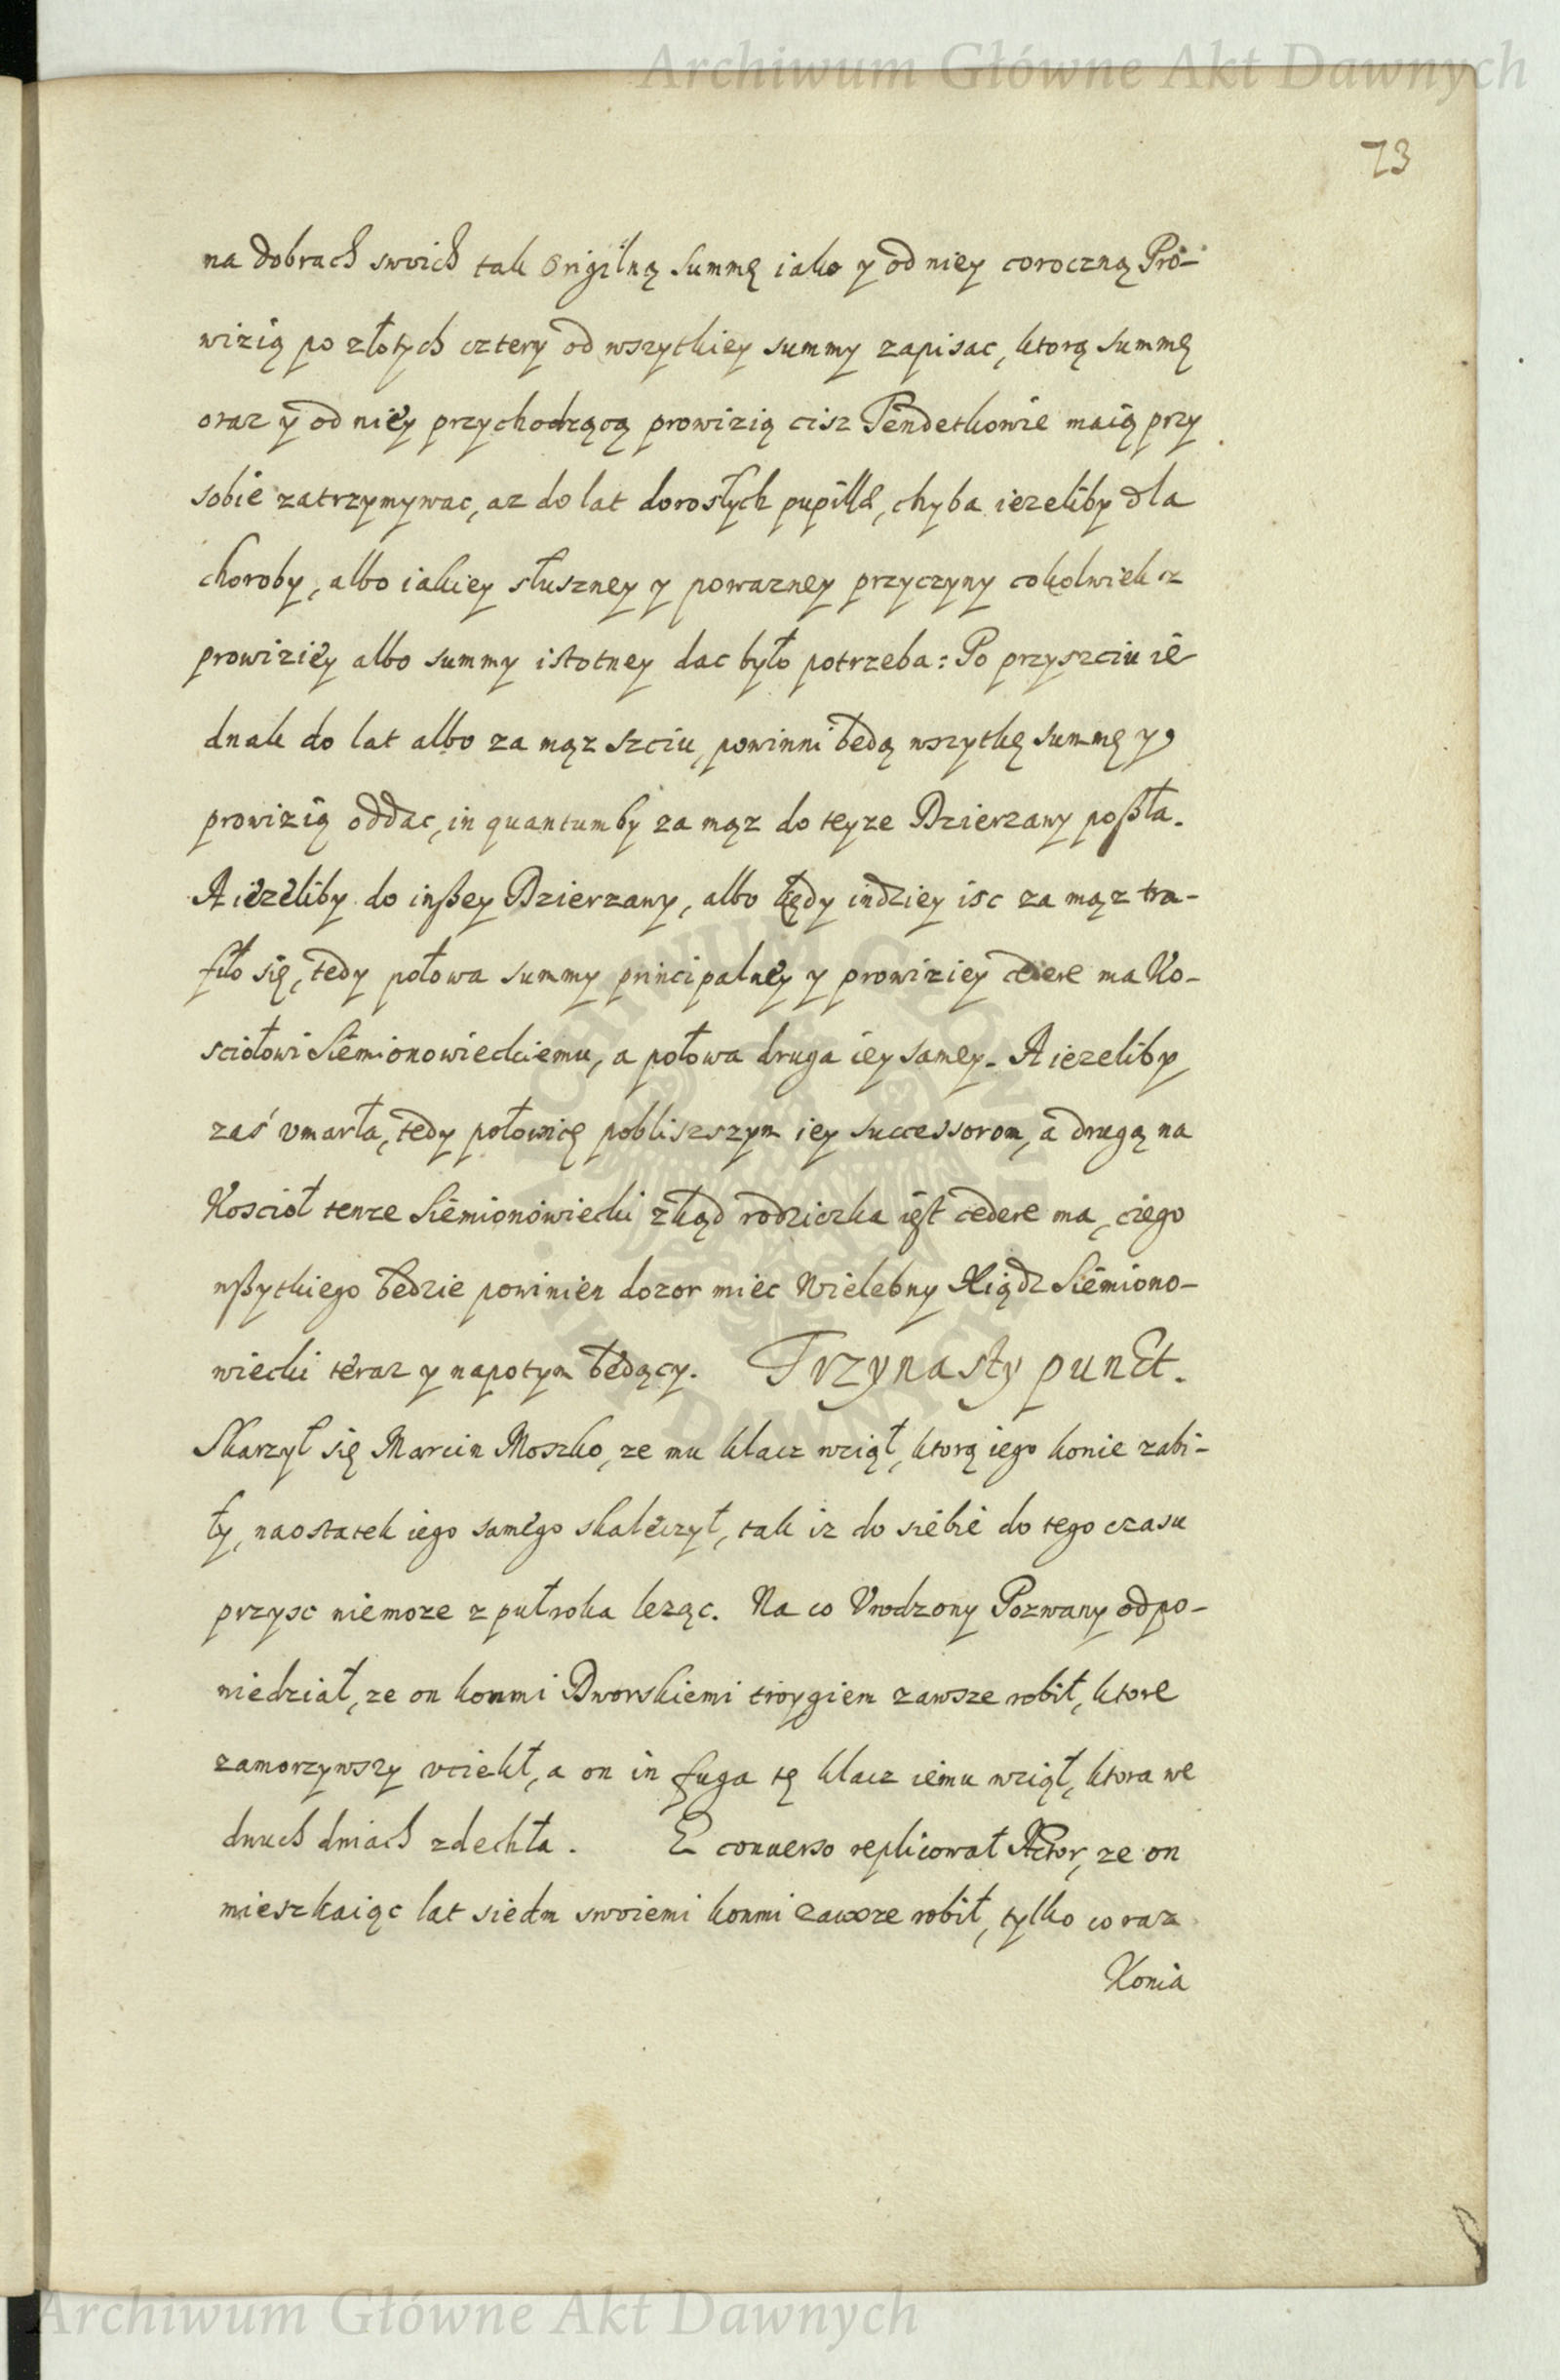 Archiwum Główne Akt Dawnych
73
na dobrach swoich tak Origilną summę iako y od niey coroczną Pro-
wizią po złotych cztery od wszytkiey summy zapisac, ktorą summę
oraz y od niey przychodzącą prowizią cisz Pendetkowie maią przy
sobie zatrzymywac, az do lat dorosłych pupille, chyba iezeliby dla
choroby, albo iakiey słuszney y powazney przyczyny cokolwiek z
prowiziey albo summy istotney dac było potrzeba: Po przyszciu ie
dnak do lat albo za mąz szciu, powinni będą wszytkę summę y
prowizią oddac, in quantumby za mąz do teyze Dzierzawy poßła.
A iezeliby do inßey Dzierzawy, albo kędy indziey isc za mąz tra-
fiło się, tedy połowa summy principalney y prowiziey cedere ma Ko-
sciołowi Siemionowieckiemu, a połowa druga iey samey. A iezeliby
zaś vmarła, tedy połowicę pobliszszym iey successorom, a drugą na
Kosciół tenze Siemionowiecki zkąd rodziczka iest cedere ma, czego
wßytkiego będzie powinien dozor miec Wielebny Xiądz Siemiono-
wiecki teraz y napotym będący. Trzynasty punct.
Skarzył się Marcin Moszko, ze mu klacz wziął, ktorą iego konie zabi-
ły, naostatek iego samego skaleczył, tak iz do siebie do tego czasu
przysc niemoze z pułroka leząc. Na co Vrodzony Pozwany odpo-
wiedział, ze on konmi Dworskiemi troygiem zawsze robił, ktore
zamorzywszy vciekł, a on in fuga tę klacz iemu wziął, ktora we
dwuch dniach zdechła. E conuerso replicował Actor, ze on
mieszkaiąc lat siedm swoiemi konmi zawsze robił, tylko co raz
Konia
Archiwum Główne Akt Dawnych